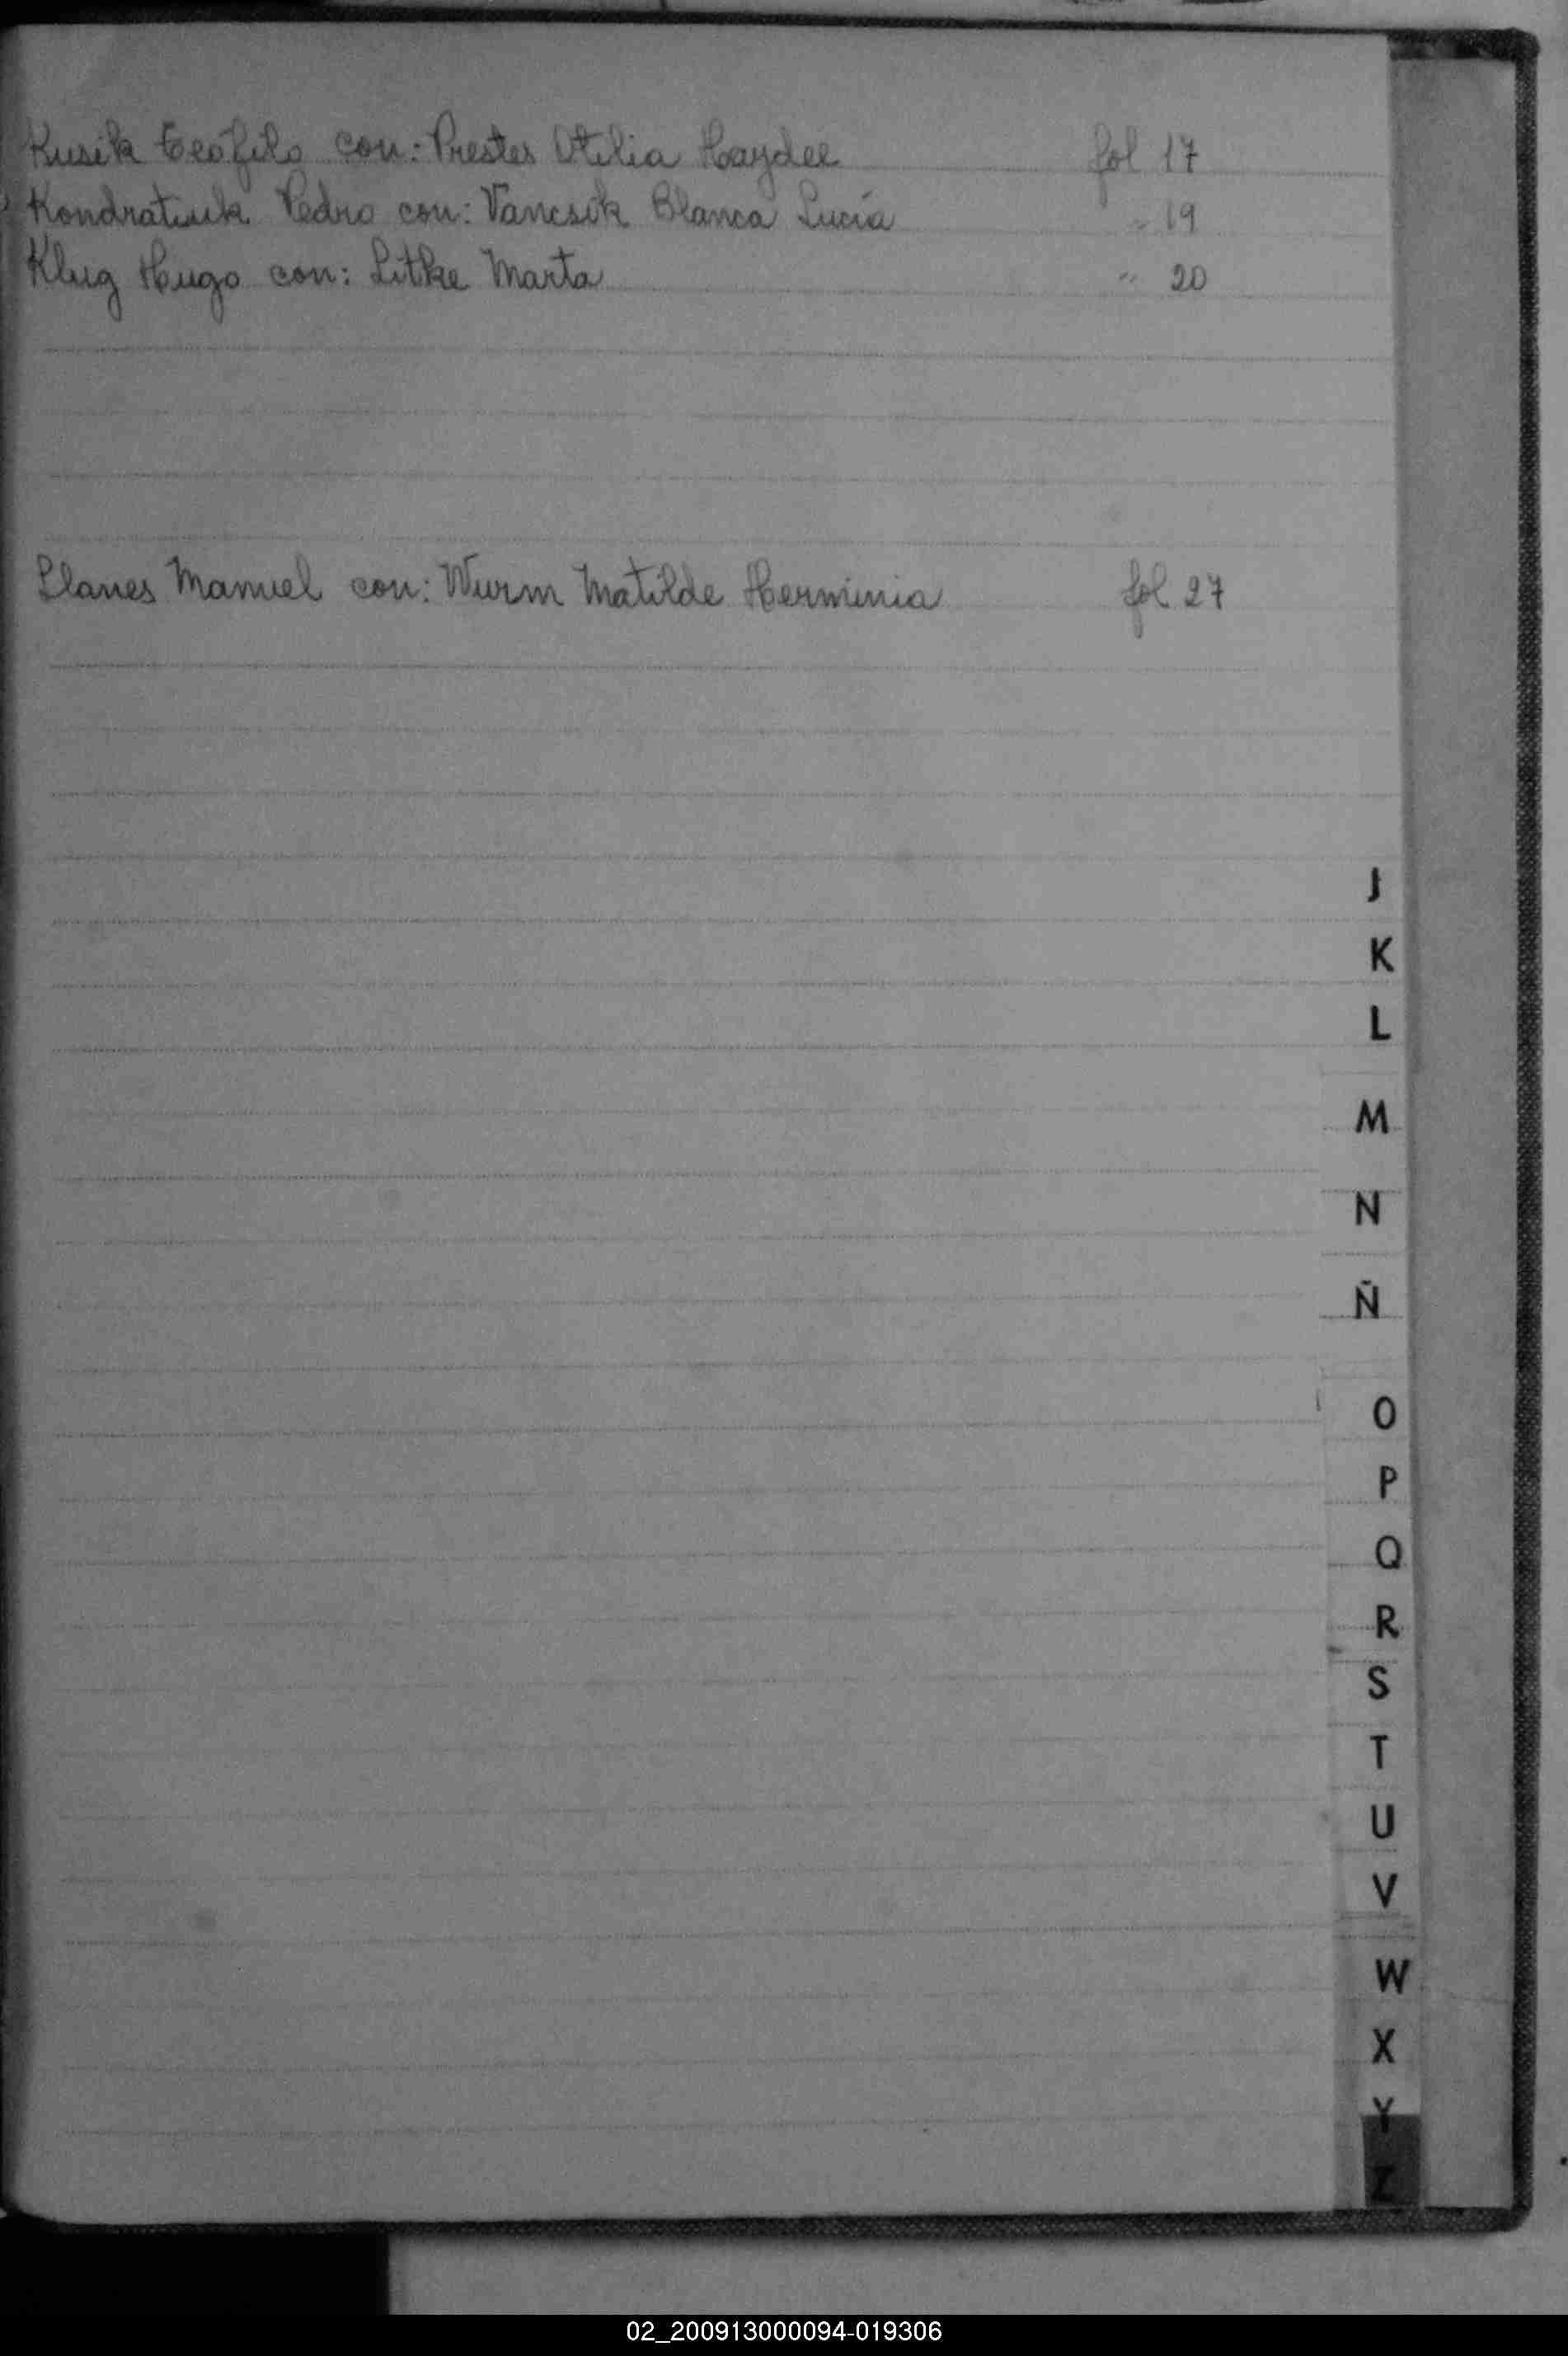 Kusik Teófilo con: Prestes Otilia Haydee fol 17
Kondratiuk Pedro con: Vancsik Blanca Lucía " 19
Klug Hugo con: Litke Marta " 20
Llanes Manuel con: Wurm Matilde Herminia fol 27
J
K
L
M
N
Ñ
O
P
Q
R
S
T
U
V
W
X
Y
Z
02_200913000094-019306